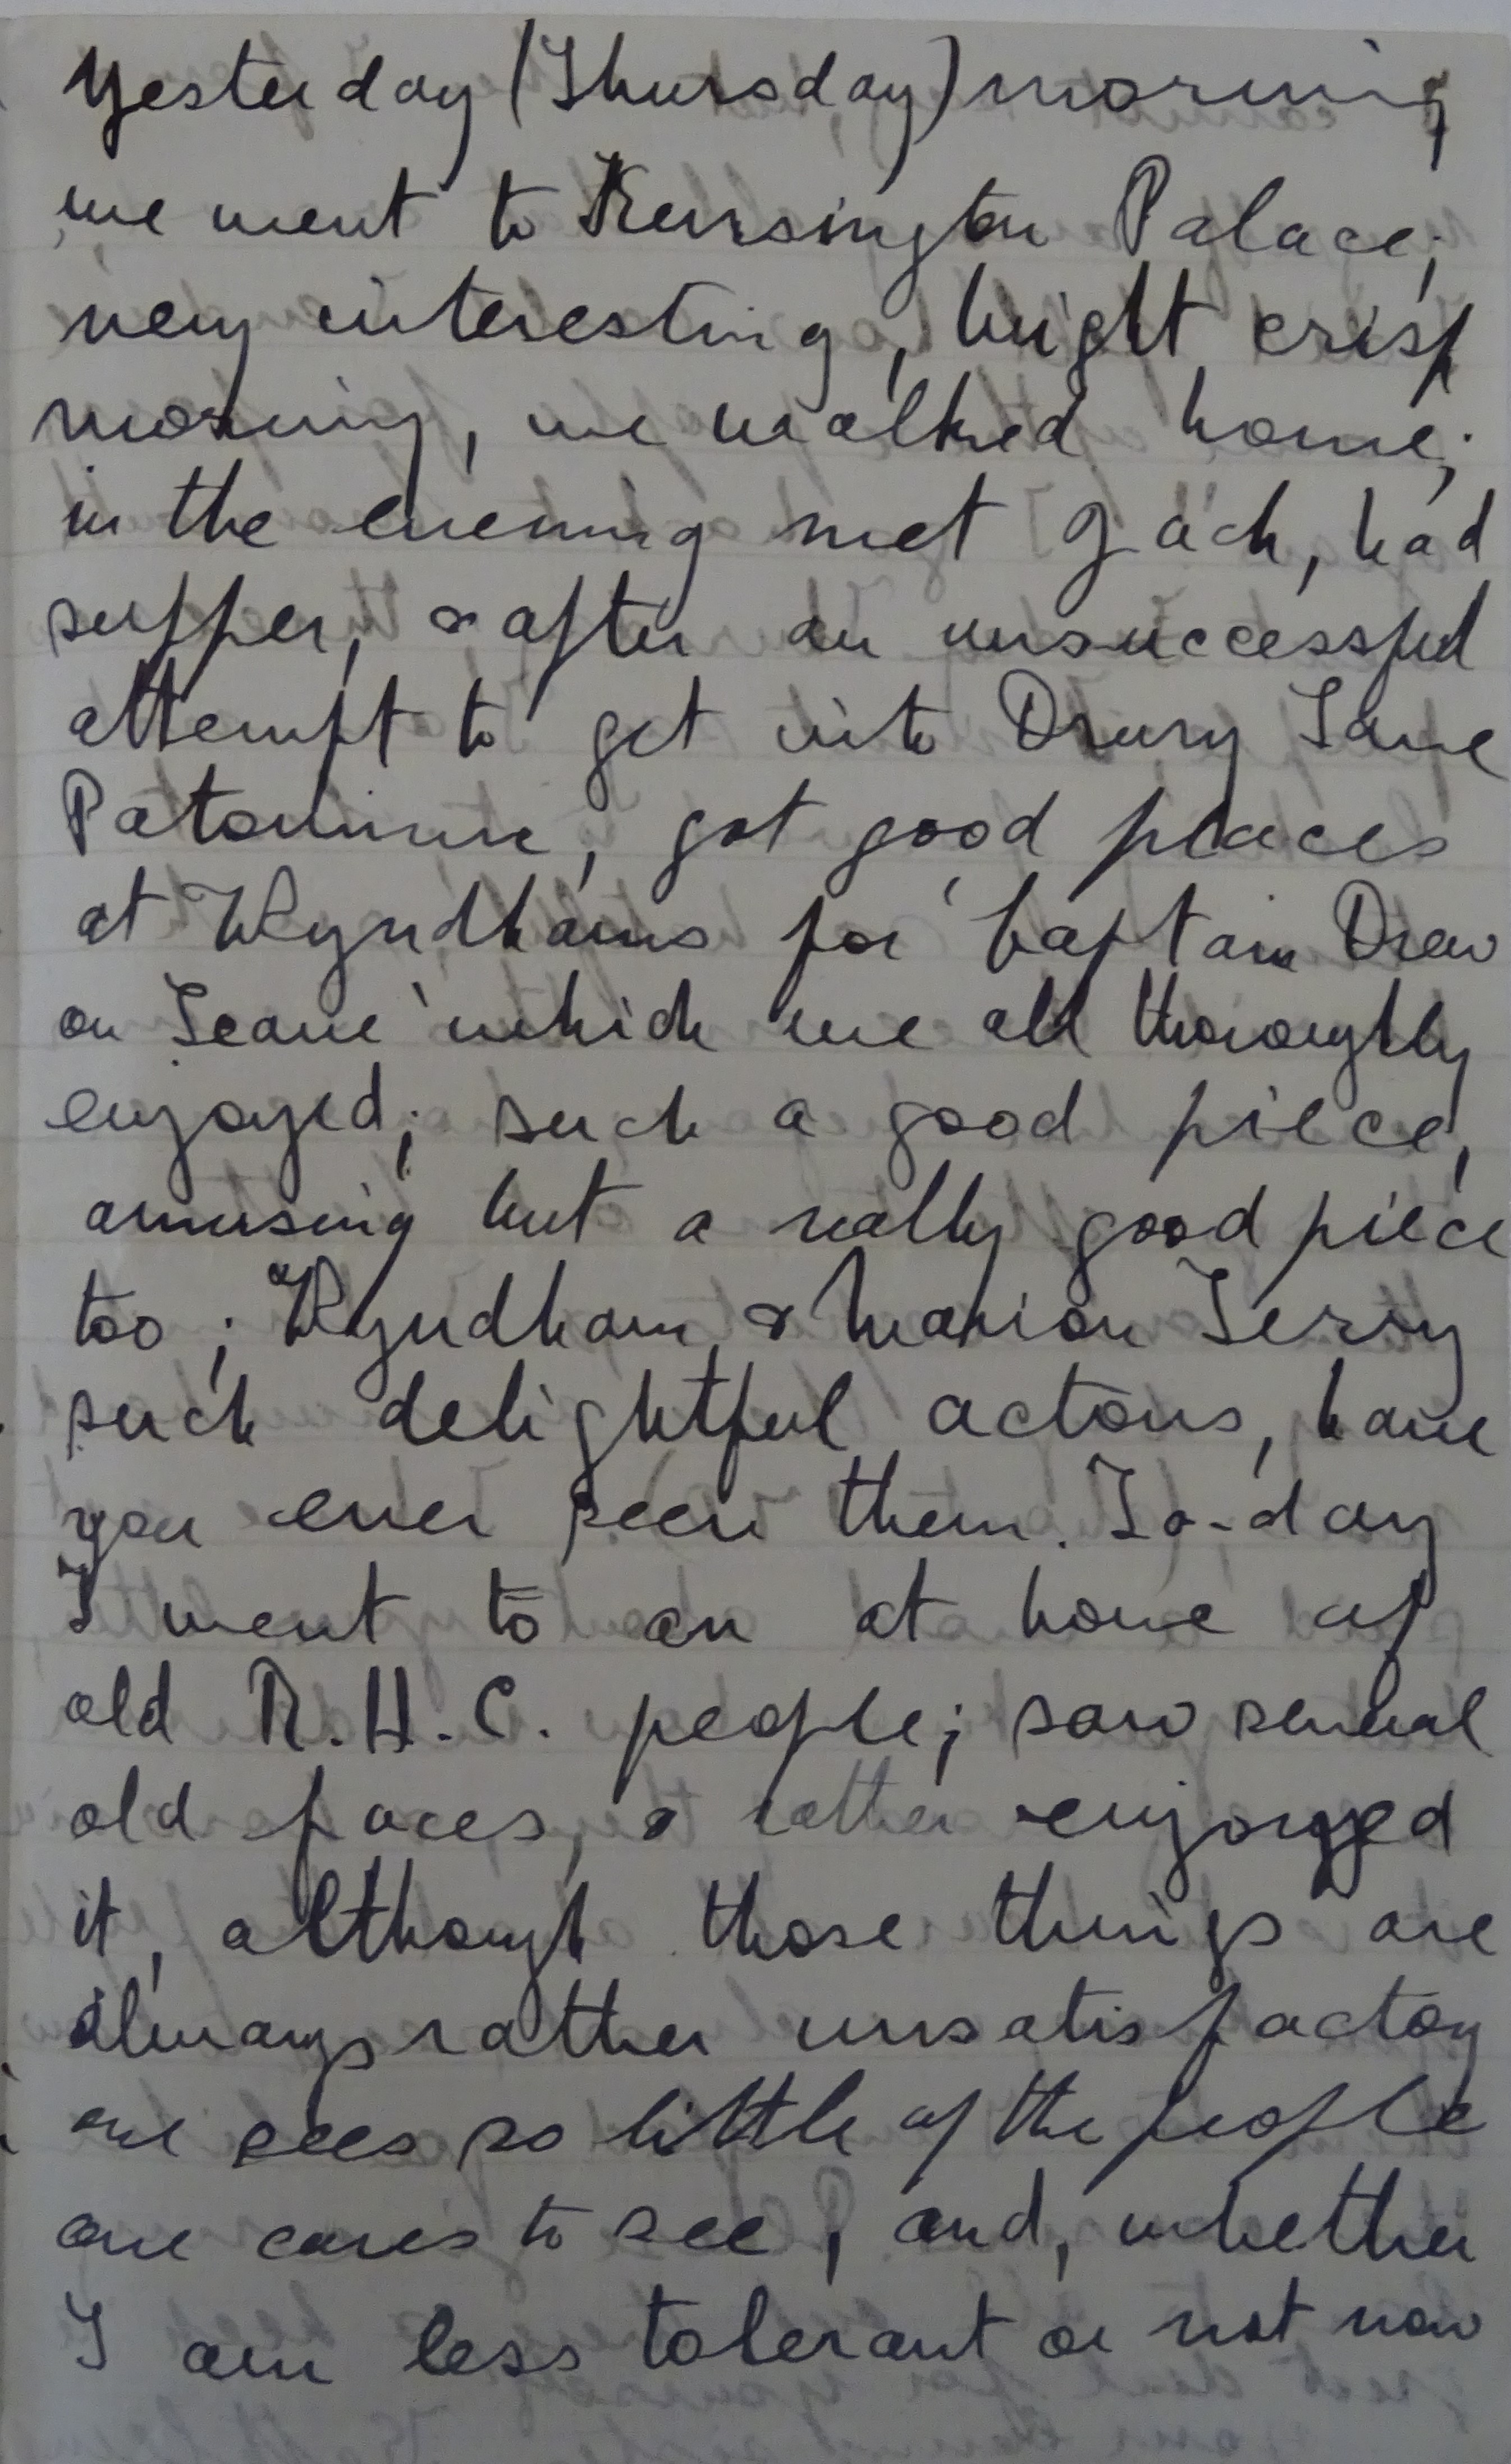 Yesterday (Thursday) morning
we went to Kensington Palace;
very interesting, bright crisp
morning, we walked home;
in the evening met Jack, had
supper, & after an unsuccessful
attempt to get into Drury Lane
Patomime, got good places
at Wyndhams for 'Captain Drew
on Leave' which we all thoroughly
enjoyed; such a good piece,
amusing but a really good piece
too; Wyndham & Marion Terry
such delightful actors, have
you ever seen them. To-day
I went to an at home of
old R.H.C. people; saw several
old faces, & rather enjoyed
it, although those things are
always rather unsatisfactory
one sees so little of the people
one cares to see, and, whether
I am less tolerant or not now